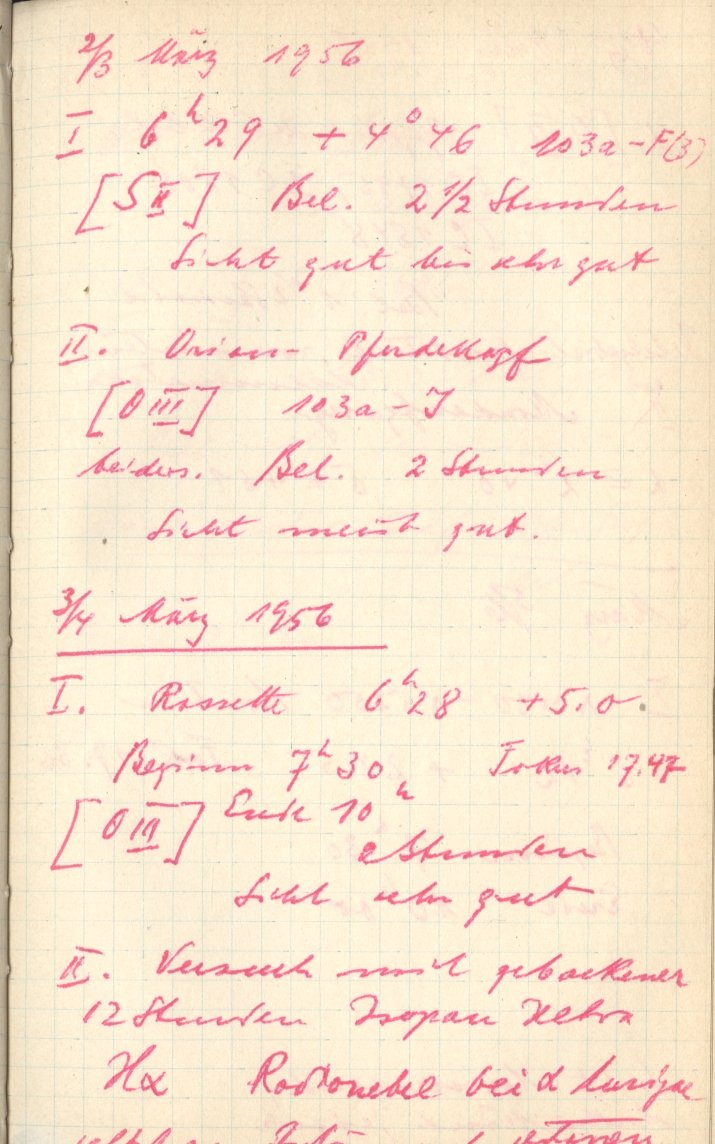 2/3 März 1956
I 6ʰ29 +4°46 103a-F(3)
[S II] Bel. 2 1/2 Stunden
Sicht gut bis sehr gut
II. Orion- Pferdekopf
[O III] 103a-J
beiders. Bel. 2 Stunden
Sicht meist gut.
3/4 März 1956
I. Rossette 6ʰ28 +5.0
Beginn 7ʰ30 Fokus 17.47
[O III] Ende 10ʰ
Stunden
Sicht sehr gut
II. Versuch mit gebackener
12 Stunden Isopan Ultra
Hα Radionebel bei α Aurigae